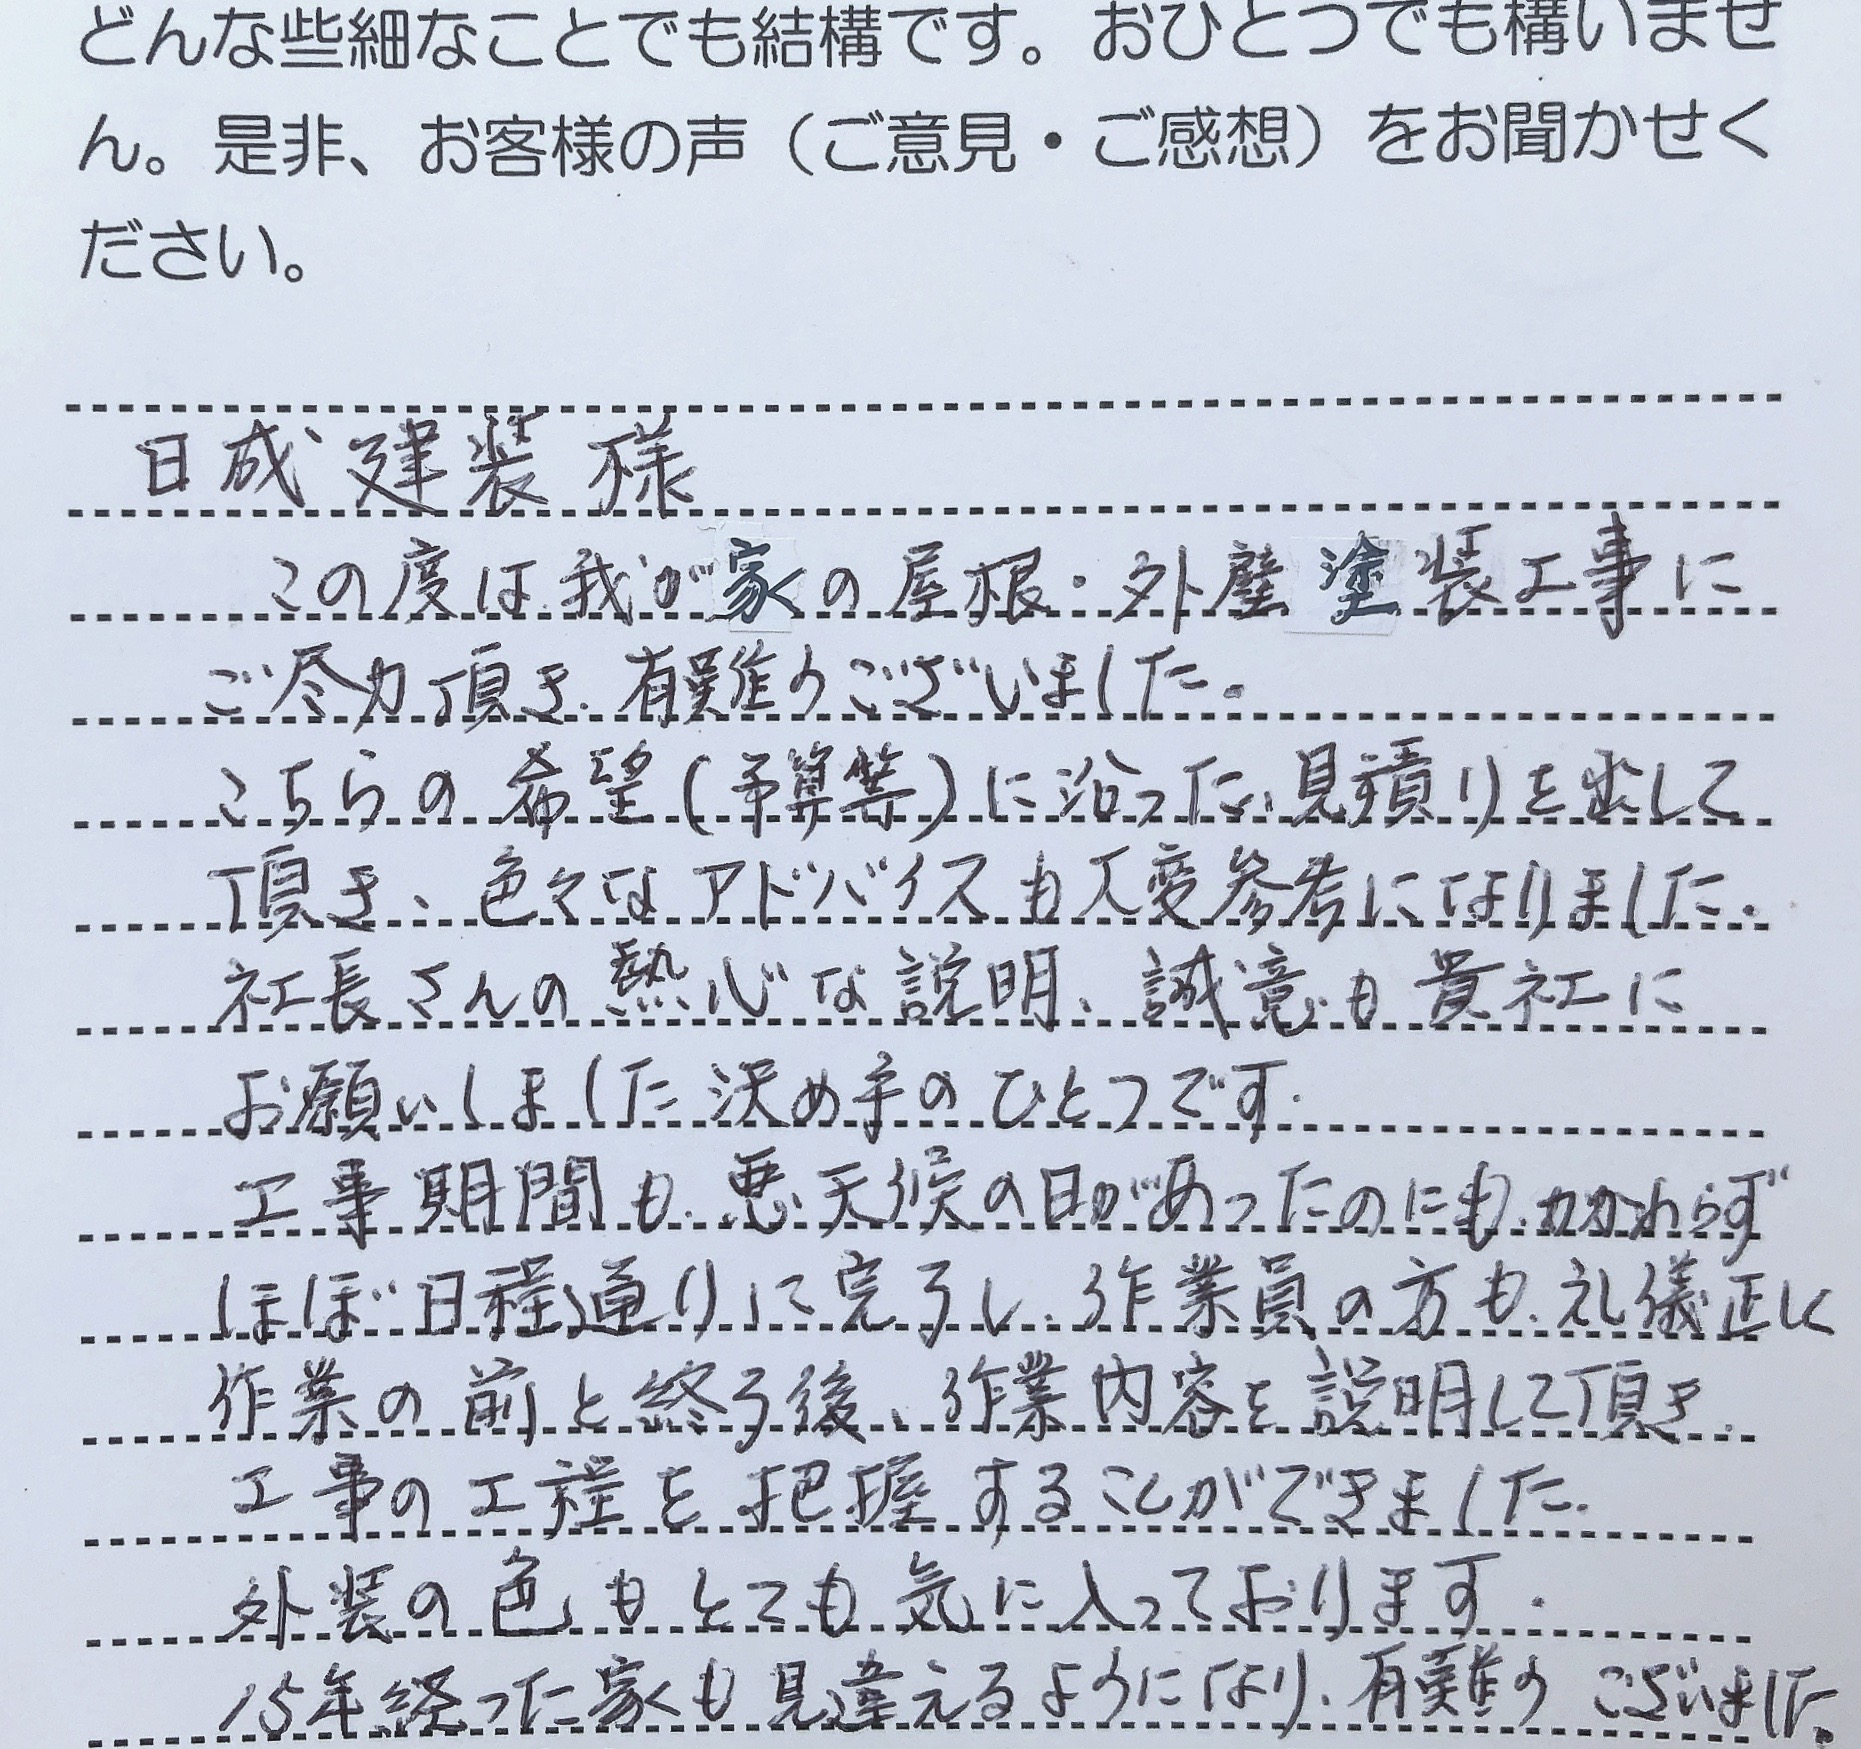 どんな些細なことでも結構です。おひとつでも構いませ
ん。是非、お客様の声（ご意見・ご感想）をお聞かせく
ださい。
日成建装様
この度は我が家の屋根・外壁塗装工事に
ご尽力頂き、有難うございました。
こちらの希望(予算等)に沿った、見積りを出して
頂き、色々なアドバイスも大変参考になりました。
社長さんの熱心な説明、誠意も貴社に
お願いしました決め手のひとつです。
工事期間も、悪天候の日があったのにも、かかわらず
ほぼ日程通りに完了し、作業員の方も、礼儀正しく
作業の前と終了後、作業内容を説明して頂き、
工事の工程を把握することができました。
外装の色もとても気に入っております。
15年経った家も見違えるようになり、有難うございました。